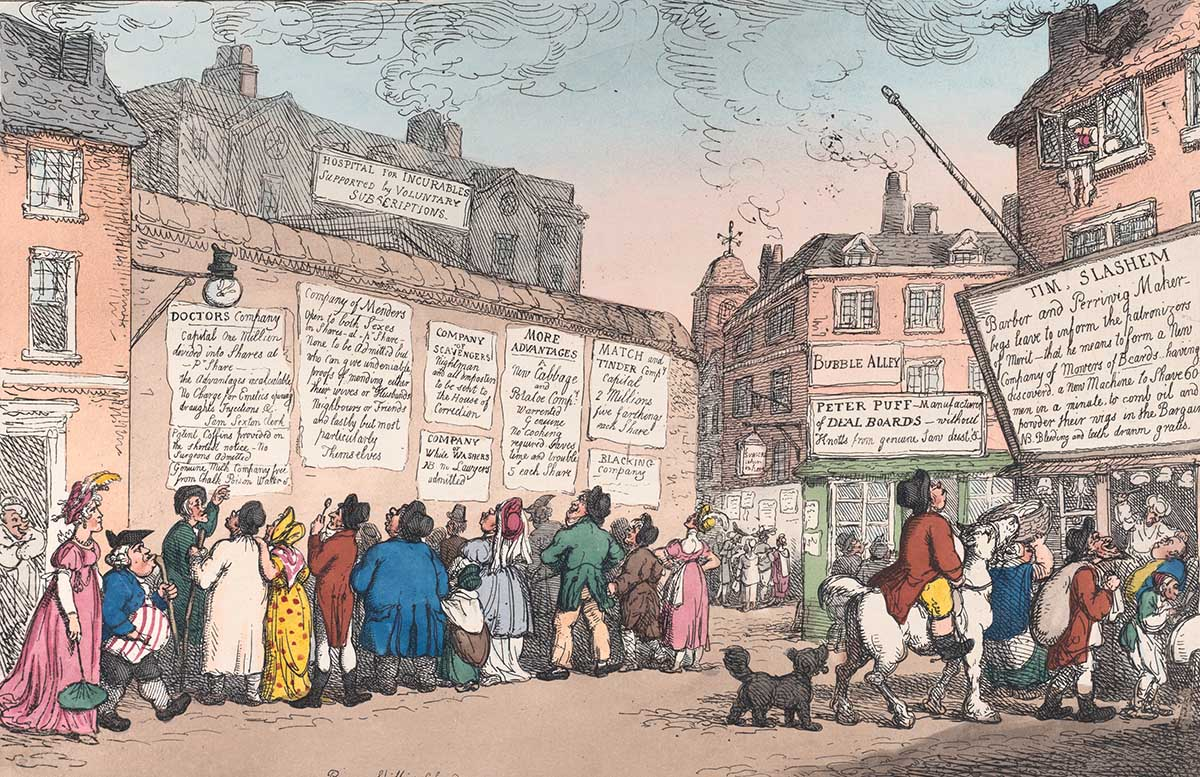 HOSPITAL FOR INCURABLES
SUPPORTED by VOLUNTARY
SUBSCRIPTIONS.
DOCTORS Company
Capital One Million
divided into Shares at
1 P Share
the Advantages incalculable
No Charge for Emetics opening
draughts Injections &c
Sam Sexton Clerk
Patent Coffins provided on
the shortest notice - No
Surgeons Admitted
Genuine Milk Company free
from Chalk Poison Water &c
Company of Menders
Open to both Sexes
in Shares - at - P Share -
None to be Admitted but
who can give undeniable
proofs of mending either
their wives or Husbands
Neighbours or Friends
and lastly but most
particularly
Themselves
COMPANY
of SCAVENGERS
Nightman
and all Imposters
to be sent to
the House of
Correction
COMPANY
White WASHERS
NB no Lawyers
admitted
MORE
ADVANTAGES
New Cabbage
and
Potatoe Compy
Warrented
Genuine
No cooking
required saves
time and trouble
5 each Share
MATCH and
TINDER Compy
Capital
2 Millions
five farthengs
each Share
BLACKING
Company
BUBBLE ALLEY
PETER PUFF - Manufactory
of DEAL BOARDS - without
Knotts from genuine Saw dust, &c
TIM. SLASHEM
Barber and Perriwig Maker -
begs leave to inform the patronizers
of Merit - that he means to form a New
Company of Mowers of Beards - having
discoverd a New Machine to Shave 60
men in a minute. to comb oil and
powder their wigs in the Bargan
NB. Bleeding and teeth drawn gratis.